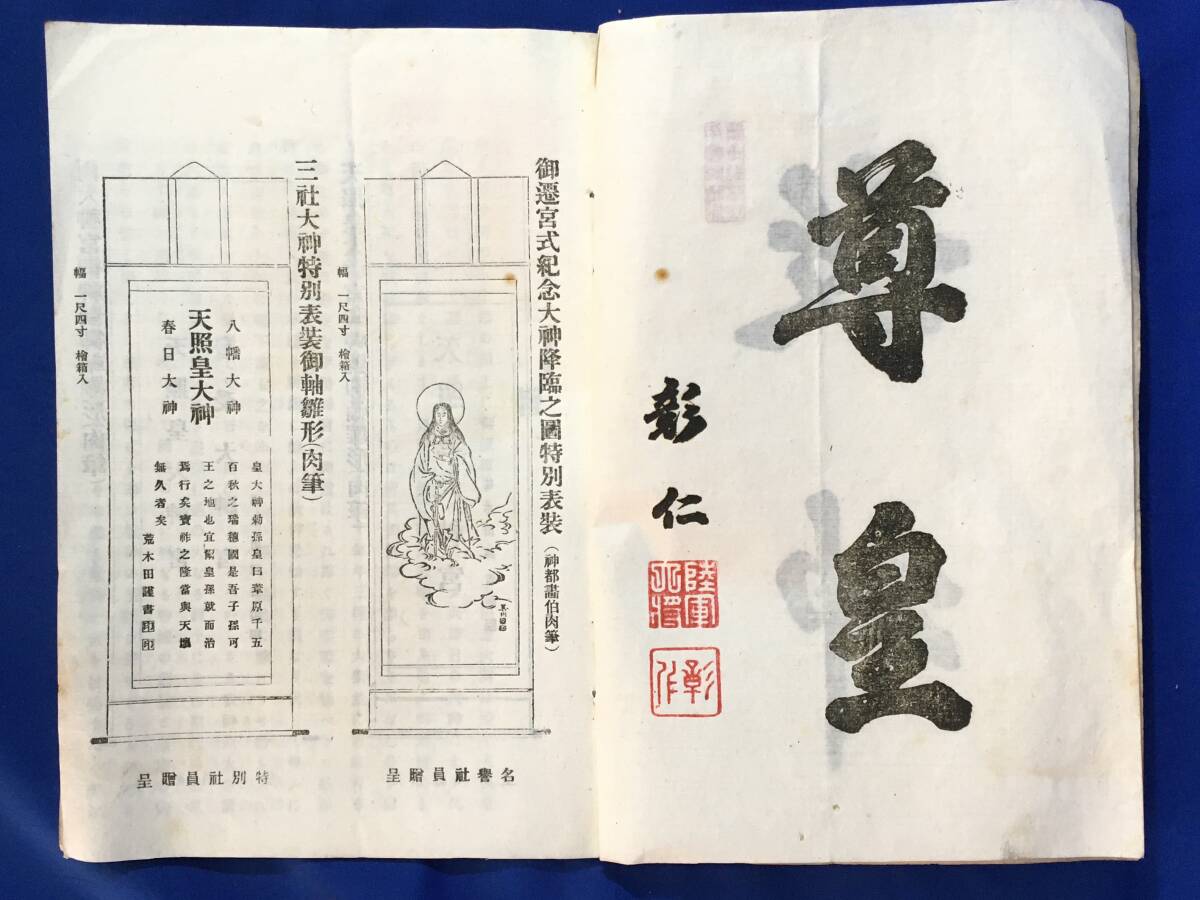 尊皇
彰仁
陸軍大将
彰仁
御遷宮式紀念大神降臨之圖特別表装（神都畵伯肉筆）
幅　一尺四寸　檜箱入
名譽社員贈呈
三社大神特別表装御軸雛形（肉筆）
八幡大神
天照皇大神
春日大神
皇大神勅孫皇曰葦原千五
百秋之瑞穂國是吾子孫可
王之地也宜爾皇孫就而治
焉行矣寶祚之隆當與天壤
無久者矣
荒木田謹書 印 印
幅　一尺四寸　檜箱入
特別社員贈呈